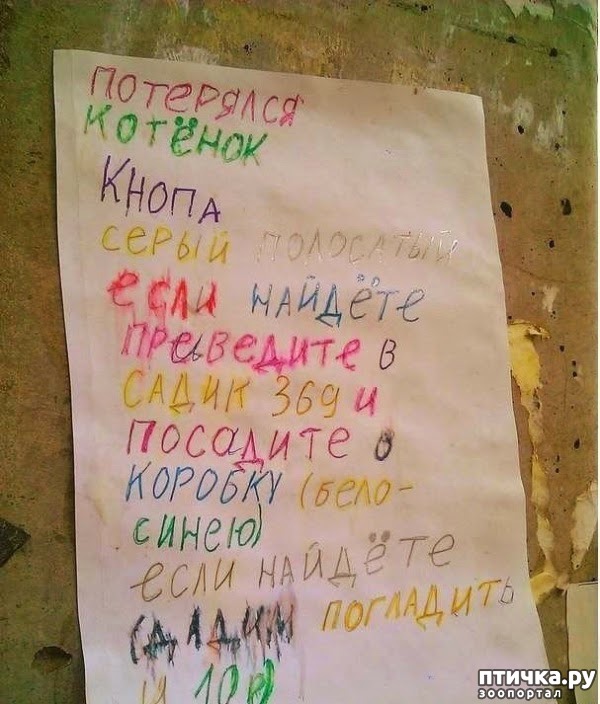 ПОТЕРЯЛСЯ
КОТЁНОК
КНОПА
СЕРЫЙ ПОЛОСАТЫЙ
если НАЙДЁТЕ
ПРЕВЕДИТЕ В
САДИК 369 И
ПОСАДИТЕ В
КОРОБКУ (бело-
синею)
если НАЙДЁТЕ
ДАДИМ ПОГЛАДИТЬ
И 10р
птичка.ру
зоопортал